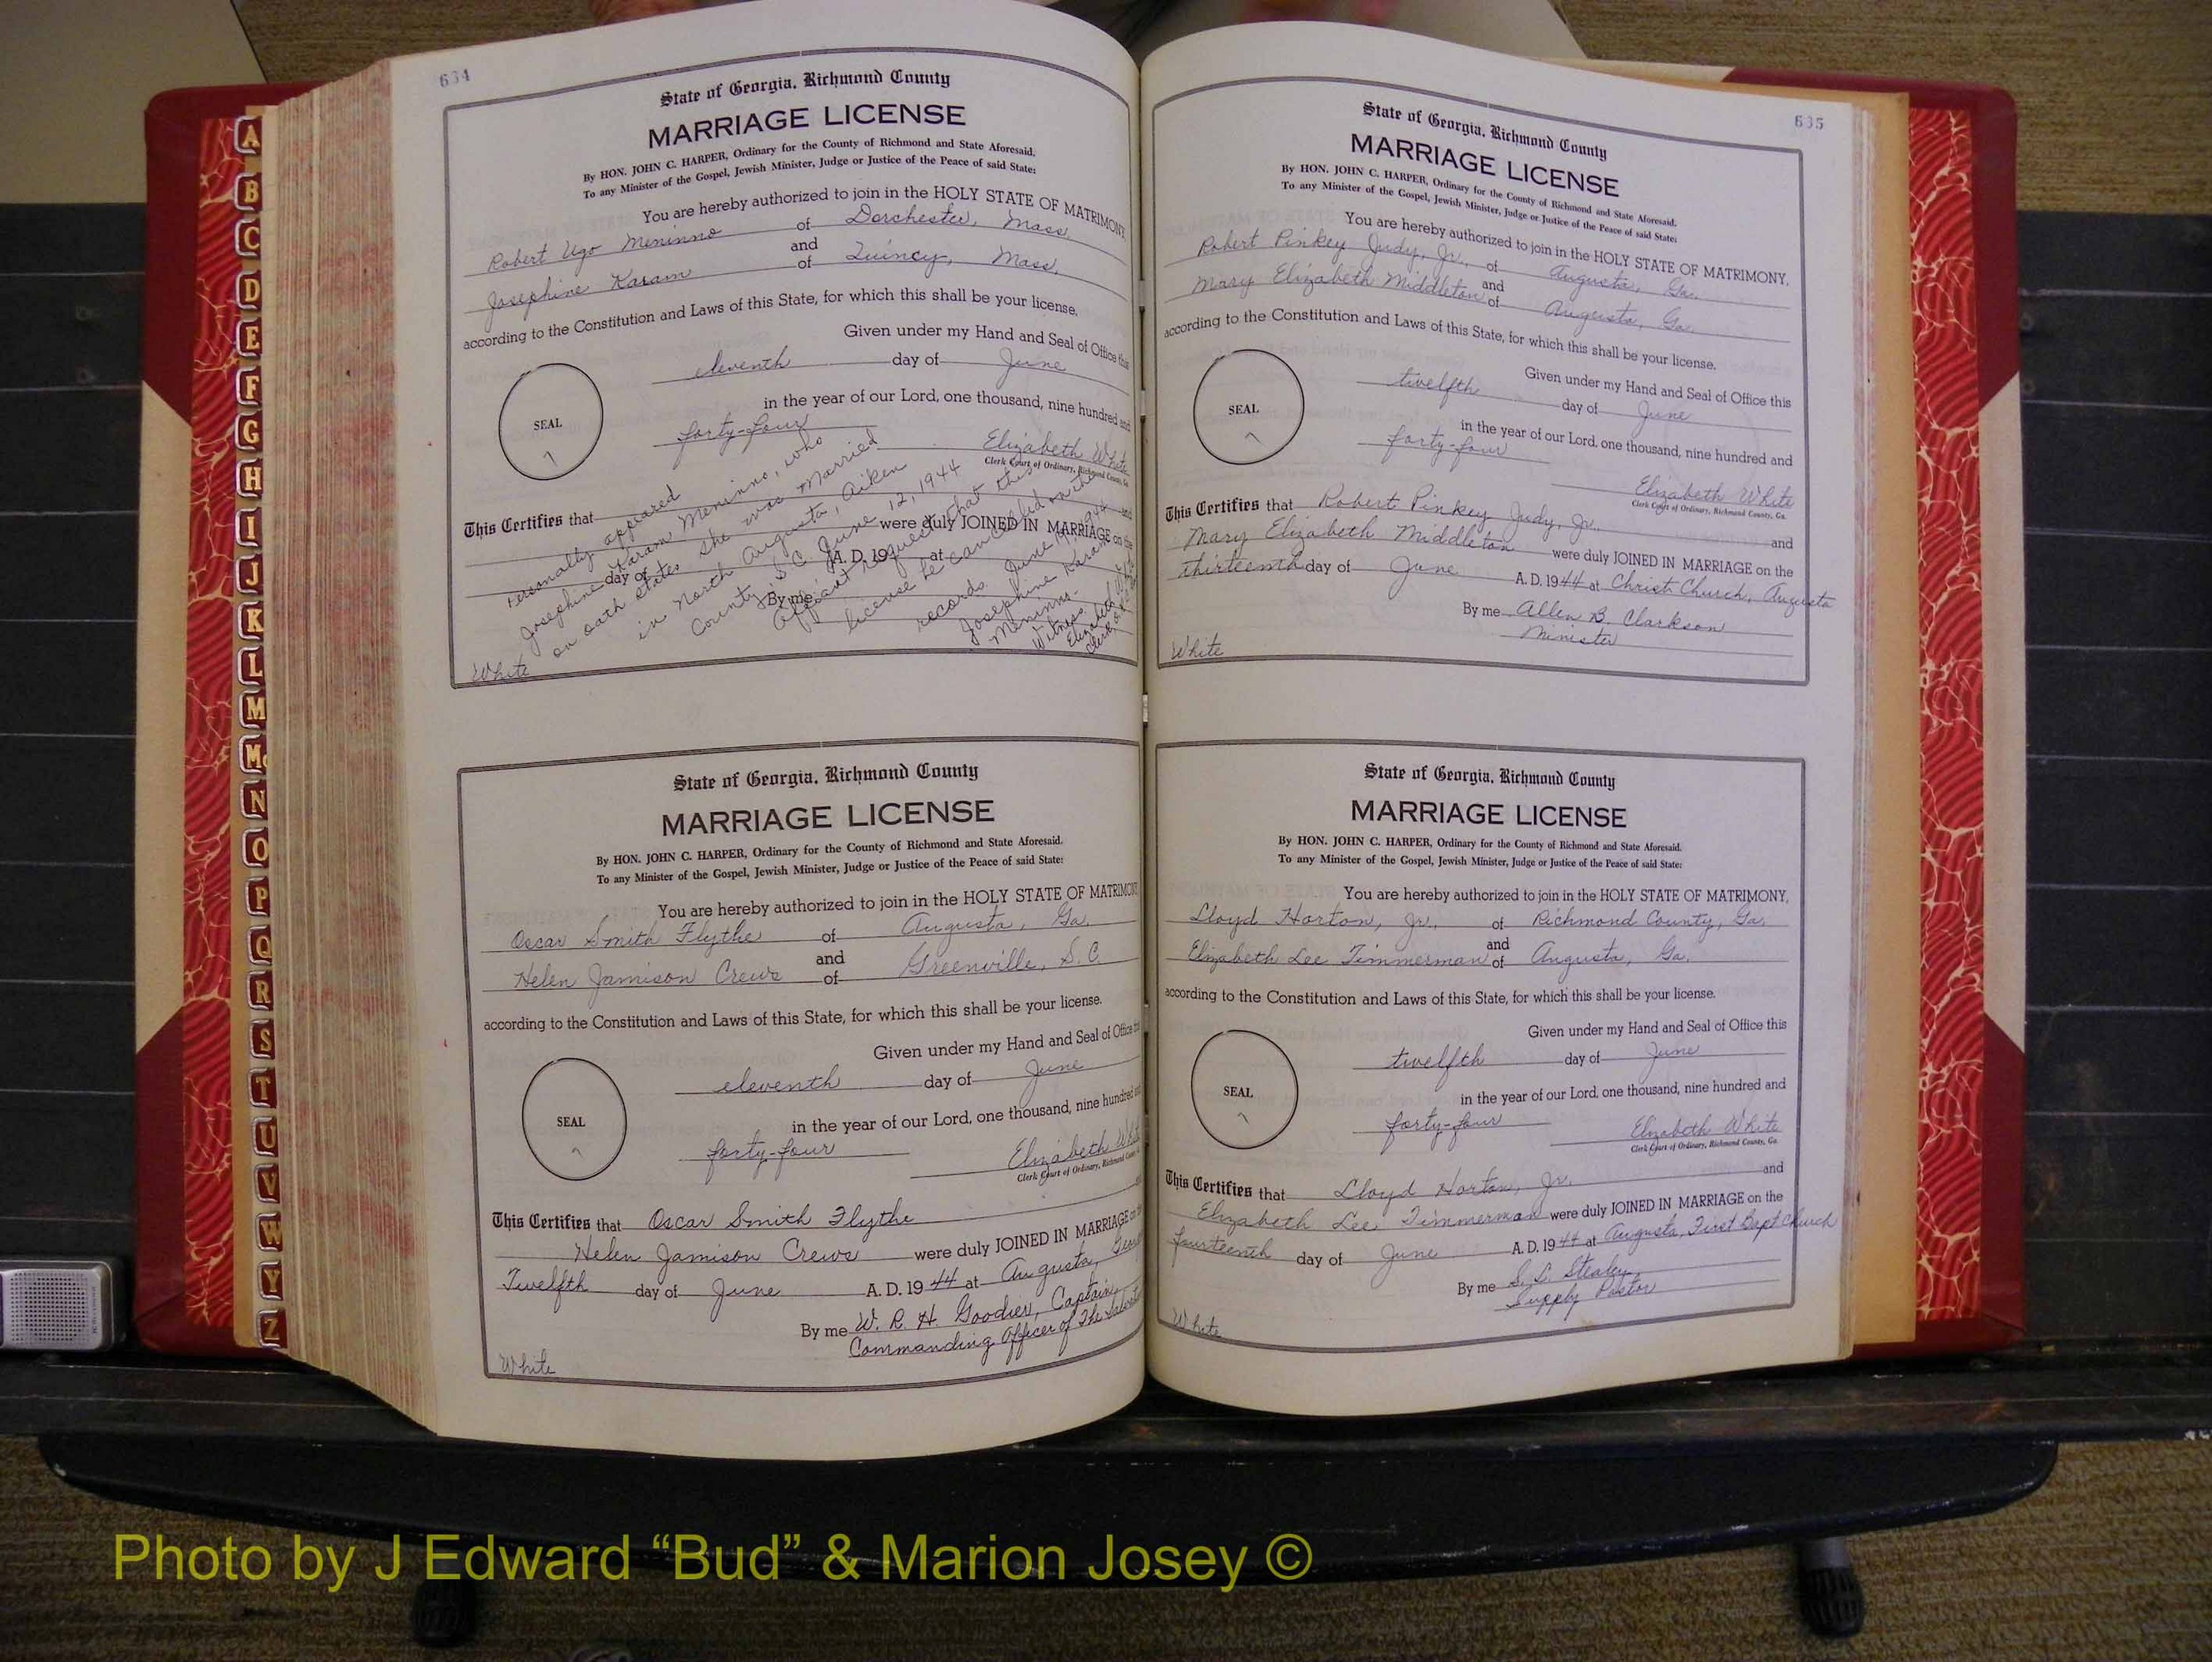 634
State of Georgia, Richmond County
MARRIAGE LICENSE
By HON. JOHN C. HARPER, Ordinary for the County of Richmond and State Aforesaid.
To any Minister of the Gospel, Jewish Minister, Judge or Justice of the Peace of said State:
You are hereby authorized to join in the HOLY STATE OF MATRIMONY,
Robert Ugo Meninno of Dorchester, Mass.
and
Josephine Karam of Quincy, Mass.
according to the Constitution and Laws of this State, for which this shall be your license.
Given under my Hand and Seal of Office this
eleventh day of June
in the year of our Lord, one thousand, nine hundred and
SEAL
forty-four
Elizabeth White
Clerk Court of Ordinary, Richmond County, Ga.
This Certifies that
and
were duly JOINED IN MARRIAGE on the
day of A. D. 19 at
By me
Personally appeared
Josephine Karam Meninno, who
on oath states she was married
in North Augusta, Aiken
County, S.C. June 12, 1944
Affiant requests that this
license be cancelled on the
records. June 1944
Josephine Karam
Meninno
Witness:
Elizabeth White
White
State of Georgia, Richmond County
MARRIAGE LICENSE
By HON. JOHN C. HARPER, Ordinary for the County of Richmond and State Aforesaid.
To any Minister of the Gospel, Jewish Minister, Judge or Justice of the Peace of said State:
You are hereby authorized to join in the HOLY STATE OF MATRIMONY
Oscar Smith Flythe of Augusta, Ga.
and
Helen Jamison Crews of Greenville, S.C.
according to the Constitution and Laws of this State, for which this shall be your license.
Given under my Hand and Seal of Office
eleventh day of June
in the year of our Lord, one thousand, nine hundred
SEAL
forty-four
Elizabeth White
Clerk Court of Ordinary, Richmond County
This Certifies that Oscar Smith Flythe
Helen Jamison Crews were duly JOINED IN MARRIAGE on
Twelfth day of June A. D. 19 44 at Augusta,
By me W. R. H. Goodier, Captain,
Commanding Officer of The
White
635
State of Georgia, Richmond County
MARRIAGE LICENSE
By HON. JOHN C. HARPER, Ordinary for the County of Richmond and State Aforesaid.
To any Minister of the Gospel, Jewish Minister, Judge or Justice of the Peace of said State:
You are hereby authorized to join in the HOLY STATE OF MATRIMONY,
Robert Pinkey Judy, Jr., of Augusta, Ga.
and
Mary Elizabeth Middleton of Augusta, Ga.
according to the Constitution and Laws of this State, for which this shall be your license.
Given under my Hand and Seal of Office this
twelfth day of June
in the year of our Lord, one thousand, nine hundred and
SEAL
forty-four
Elizabeth White
Clerk Court of Ordinary, Richmond County, Ga.
This Certifies that Robert Pinkey Judy, Jr.
and
Mary Elizabeth Middleton were duly JOINED IN MARRIAGE on the
thirteenth day of June A. D. 19 44 at Christ Church, Augusta
By me Allen B. Clarkson
Minister
White
State of Georgia, Richmond County
MARRIAGE LICENSE
By HON. JOHN C. HARPER, Ordinary for the County of Richmond and State Aforesaid.
To any Minister of the Gospel, Jewish Minister, Judge or Justice of the Peace of said State:
You are hereby authorized to join in the HOLY STATE OF MATRIMONY,
Lloyd Horton, Jr., of Richmond County, Ga.
and
Elizabeth Lee Timmerman of Augusta, Ga.
according to the Constitution and Laws of this State, for which this shall be your license.
Given under my Hand and Seal of Office this
twelfth day of June
in the year of our Lord, one thousand, nine hundred and
SEAL
forty-four
Elizabeth White
Clerk Court of Ordinary, Richmond County, Ga.
This Certifies that Lloyd Horton, Jr.
and
Elizabeth Lee Timmerman were duly JOINED IN MARRIAGE on the
fourteenth day of June A. D. 19 44 at Augusta, First Bapt Church
By me S. L. Stealey,
Supply Pastor
White
A
B
C
D
E
F
G
H
I
J
K
L
M
Mc
N
O
P
Q
R
S
T
U
V
W
Y
Z
Photo by J Edward “Bud” & Marion Josey ©